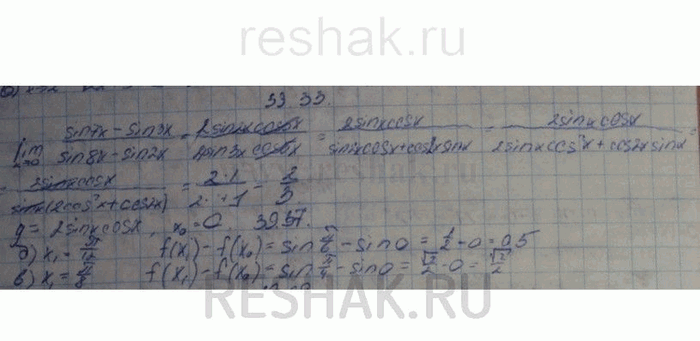 reshak.ru
39.33.
lim x→0 (sin7x − sin3x)/(sin8x − sin2x) = (2sin2xcos5x)/(2sin3xcos5x) = (2sinxcosx)/(sin2xcosx+cos2xsinx) = (2sinxcosx)/(2sinxcos²x+cos2xsinx) =
= (2sinxcosx)/(sinx(2cos²x+cos2x)) = (2·1)/(2·1+1) = 2/3
39.37.
y = 2sinxcosx, x₀ = 0.
б) x₁ = π/12 f(x₁) − f(x₀) = sin π/6 − sin0 = 1/2 − 0 = 0,5
в) x₁ = π/8 f(x₁) − f(x₀) = sin π/4 − sin0 = √2/2 − 0 = √2/2
RESHAK.RU